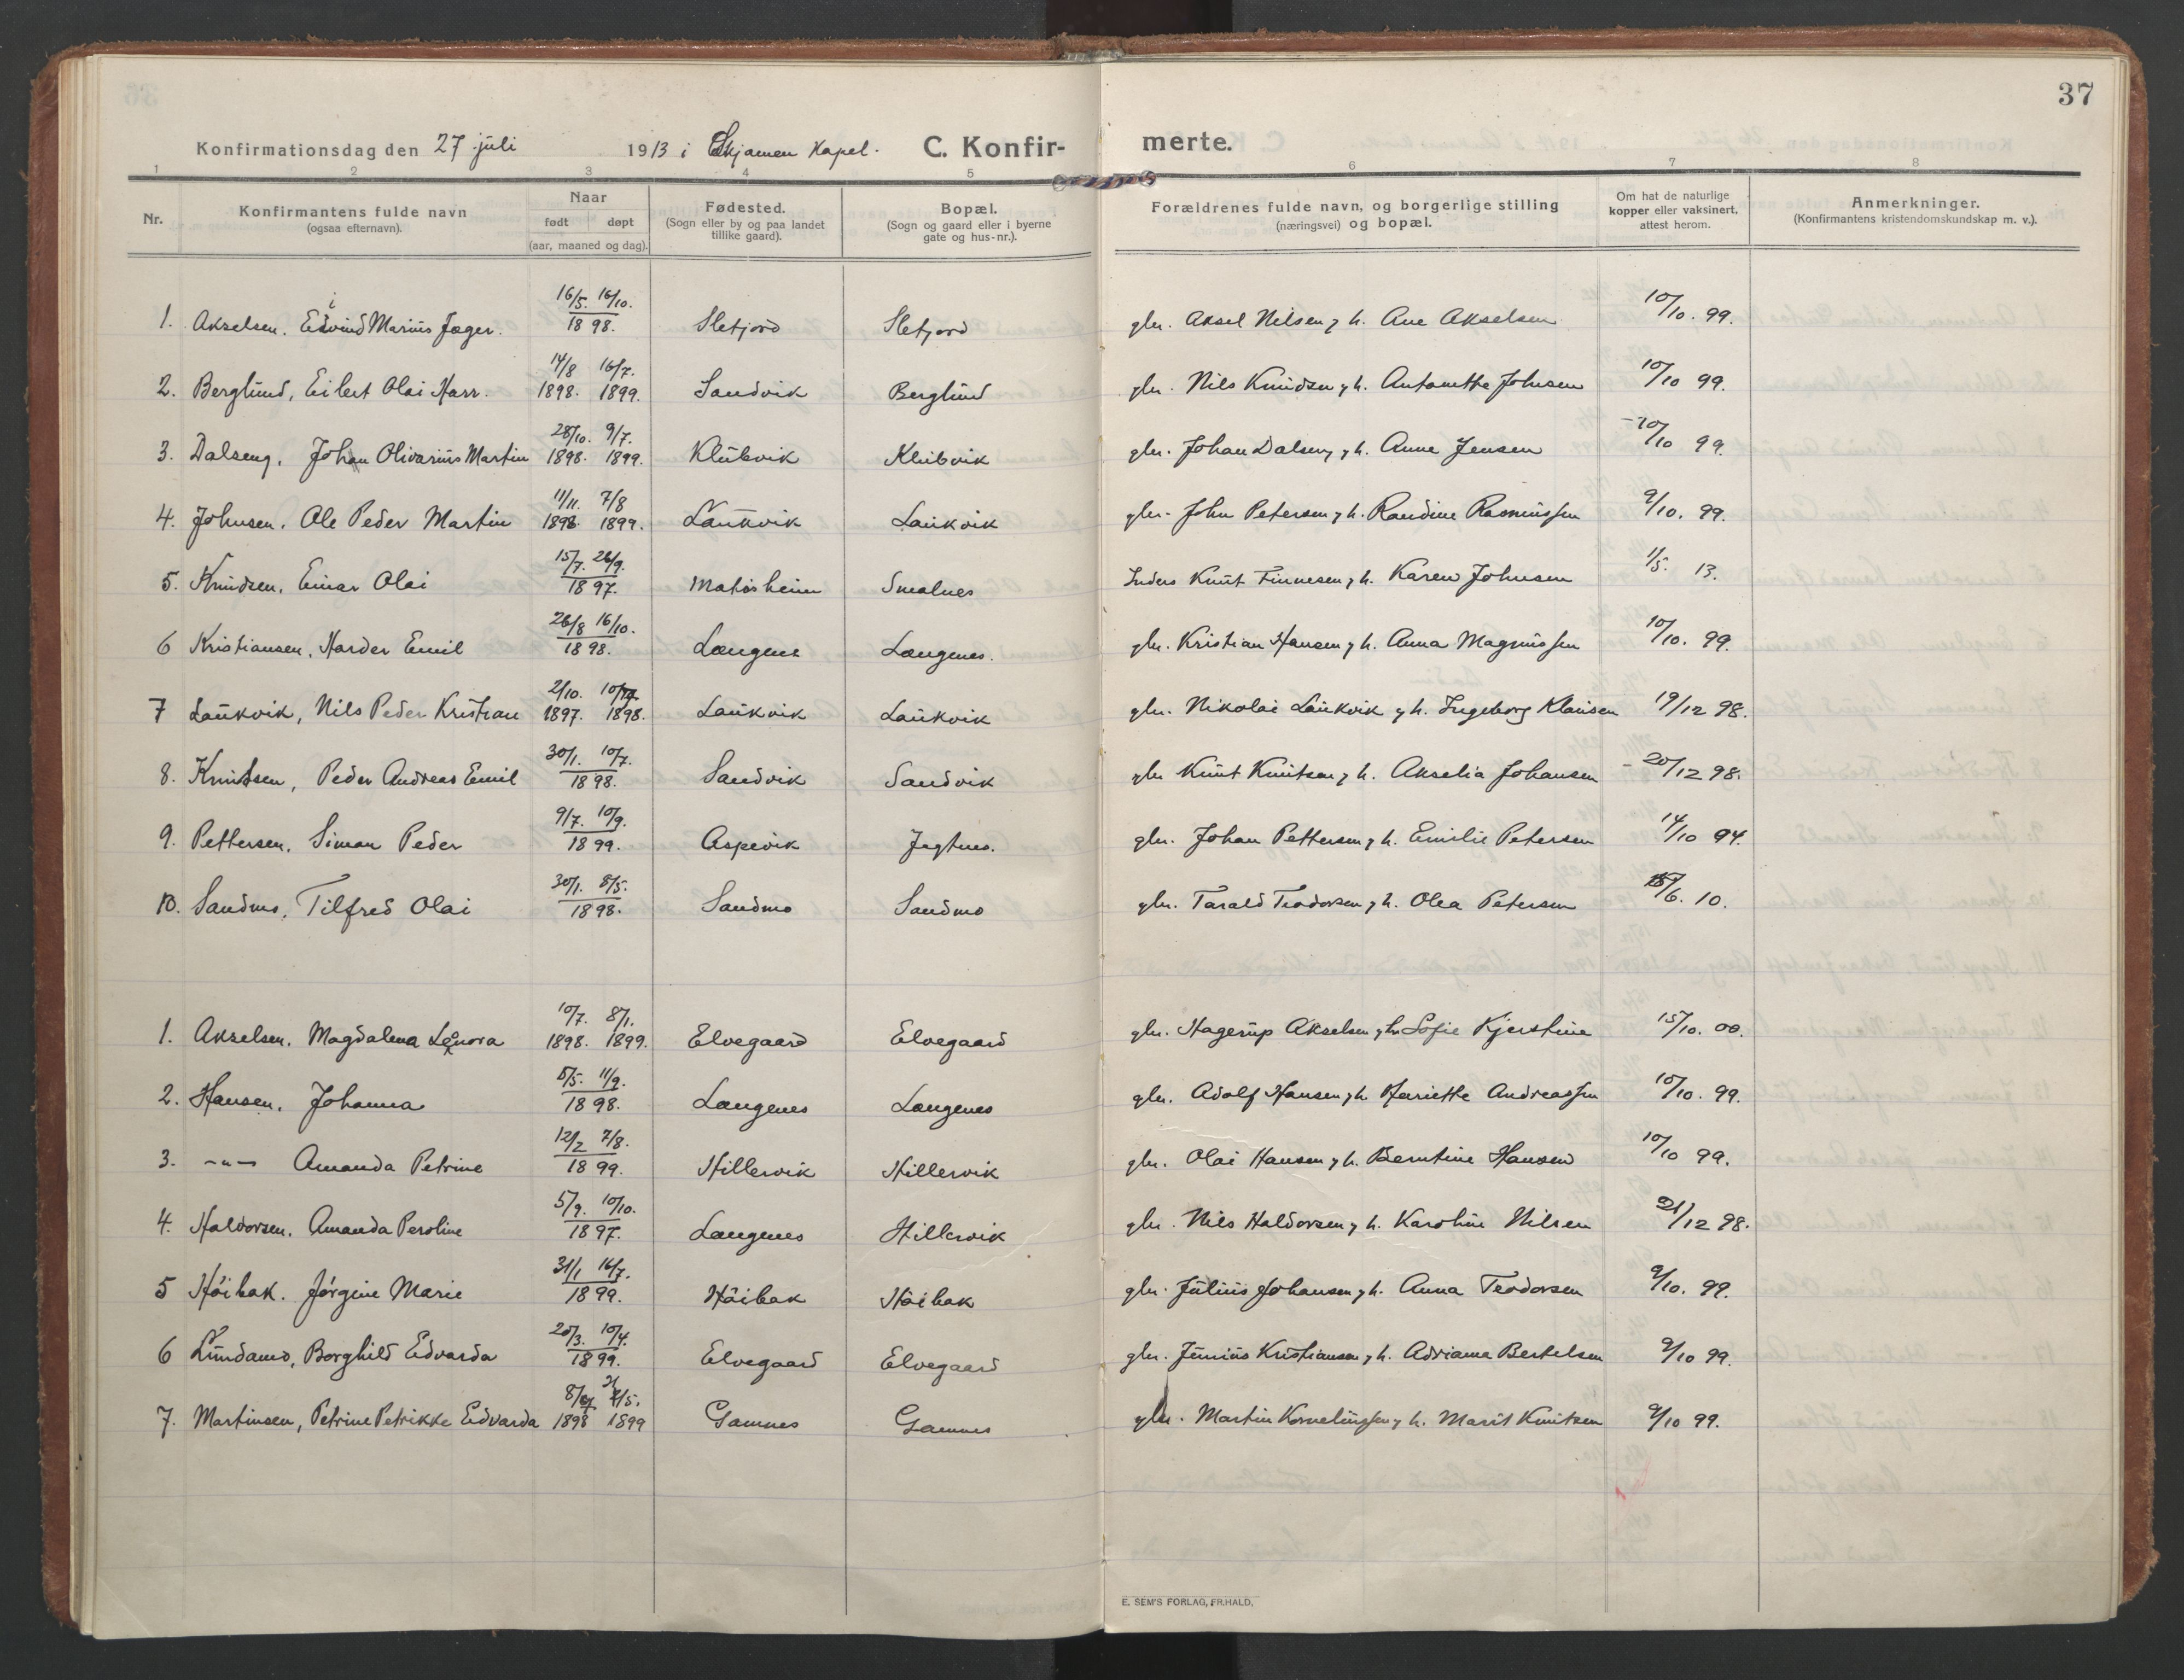 37
Konfirmationsdag den 27 juli 1913 i Skjomen Kapel. C. Konfir- merte.
1 2 3 4 5 6 7 8
Nr. Konfirmantens fulde navn (ogsaa efternavn). Naar født døpt (aar, maaned og dag). Fødested. (Sogn eller by og paa landet tillike gaard). Bopæl. (Sogn og gaard eller i byerne gate og hus-nr.). Forældrenes fulde navn, og borgerlige stilling (næringsvei) og bopæl. Om hat de naturlige kopper eller vaksinert, attest herom. Anmerkninger. (Konfirmantens kristendomskundskap m. v.).
1. Akselsen. Eivind Marius Jæger. 16/5. 16/10. 1898. Sletjord Sletjord gbr. Aksel Nilsen & h. Ane Akselsen 10/10. 99.
2. Berglund, Eilert Olai Harr. 14/8 16/7. 1898. 1899. Sandvik Berglund gbr. Nils Knudsen & h. Antonette Johnsen 10/10 99.
3. Dalseng, Johan Olivarius Martin 28/10. 9/7. 1898. 1899. Klubvik Klubvik gbr. Johan Dalseng & h. Anne Jensen 10/10 99.
4. Johnsen. Ole Peder Martin 11/11. 7/8 1898. 1899. Laukvik Laukvik gbr. John Petersen & h. Randine Rasmussen 9/10. 99.
5. Knudsen, Einar Olai 15/7. 26/9. 1897. Matisheim Smalnes Inders Knut Finnesen & h. Karen Johnsen 1/5. 13.
6 Kristiansen, Harder Emil 26/8 16/10. 1898. Langenes Langenes. gbr. Kristian Hansen & h. Anna Magnussen 10/10. 99.
7 Laukvik, Nils Peder Kristian 2/10. 10/4. 1897. 1898. Laukvik Laukvik gbr. Nikolai Laukvik & h. Ingeborg Klausen 19/12 98.
8. Knutsen, Peder Andreas Emil 30/1. 10/7. 1898. Sandvik Sandvik gbr Knut Knutsen & h. Akselia Johansen 20/12 98.
9. Pettersen, Simon Peder 9/7. 10/9. 1899. Aspevik Jagtnes. gbr. Johan Pettersen & h. Emilie Petersen 14/10 94.
10. Sandmo, Tilfred Olai 30/1. 8/5. 1898. Sandmo Sandmo gbr. Tarald Teodorsen & h. Olea Petersen 15/6. 10.
1. Akselsen. Magdalena Lenora 10/7. 8/1. 1898. 1899. Elvegaard Elvegaard gbr. Hagerup Akselsen & h. Sofie Kjerstine 15/10. 00.
2. Hansen, Johanna 5/5. 11/9. 1898. Langenes Langenes gbr. Adolf Hansen & h. Hariette Andreassen 10/10. 99.
3. -"- Amanda Petrine 12/2 7/8. 1899. Hillervik Hillervik gbr. Olai Hansen & h. Berntine Hansen 10/10 99.
4. Haldorsen. Amanda Peroline 5/9. 10/10. 1897. Langenes Hillervik gbr. Nils Haldorsen & h. Karoline Nilsen 21/12 98.
5 Höibak. Jørgine Marie 31/1 16/7. 1899. Höibak Höibak gbr. Julius Johansen & h. Anna Teodorsen 9/10. 99.
6 Lundamo, Borghild Edvarda 20/3. 10/4. 1899. Elvegaard Elvegaard gbr. Junius Kristiansen & h. Adriana Bertelsen 9/10 99.
7. Martinsen, Petrine Petrikke Edvarda 21/5. 1898 1899 Gamnes Gamnes gbr. Martin Korneliussen & h. Marit Knutsen 9/10 99.
E. SEM'S FORLAG, FR.HALD.